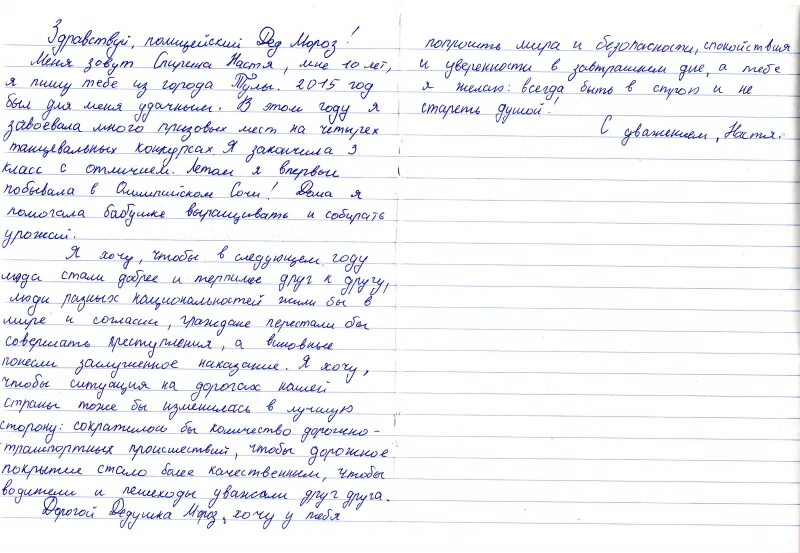 Здравствуй, полицейский Дед Мороз!
Меня зовут Настя, мне 10 лет,
я пишу тебе из города Тулы. 2015 год
был для меня удачным. В этом году я
завоевала много призовых мест на четырех
танцевальных конкурсах. Я закончила 3
класс с отличием. Летом я впервые
побывала в Олимпийском Сочи! Дома я
помогала бабушке выращивать и собирать
урожай.
Я хочу, чтобы в следующем году
люди стали добрее и терпимее друг к другу,
люди разных национальностей жили бы в
мире и согласии, граждане перестали бы
совершать преступления, а виновные
понесли заслуженное наказание. Я хочу,
чтобы ситуация на дорогах нашей
страны тоже бы изменилась в лучшую
сторону: сократилось бы количество дорожно-
транспортных происшествий, чтобы дорожное
покрытие стало более качественным, чтобы
водители и пешеходы уважали друг друга.
Дорогой Дедушка Мороз, хочу у тебя
попросить мира и безопасности, спокойствия
и уверенности в завтрашнем дне, а тебе
я желаю: всегда быть в строю и не
стареть душой!
С уважением, Настя.